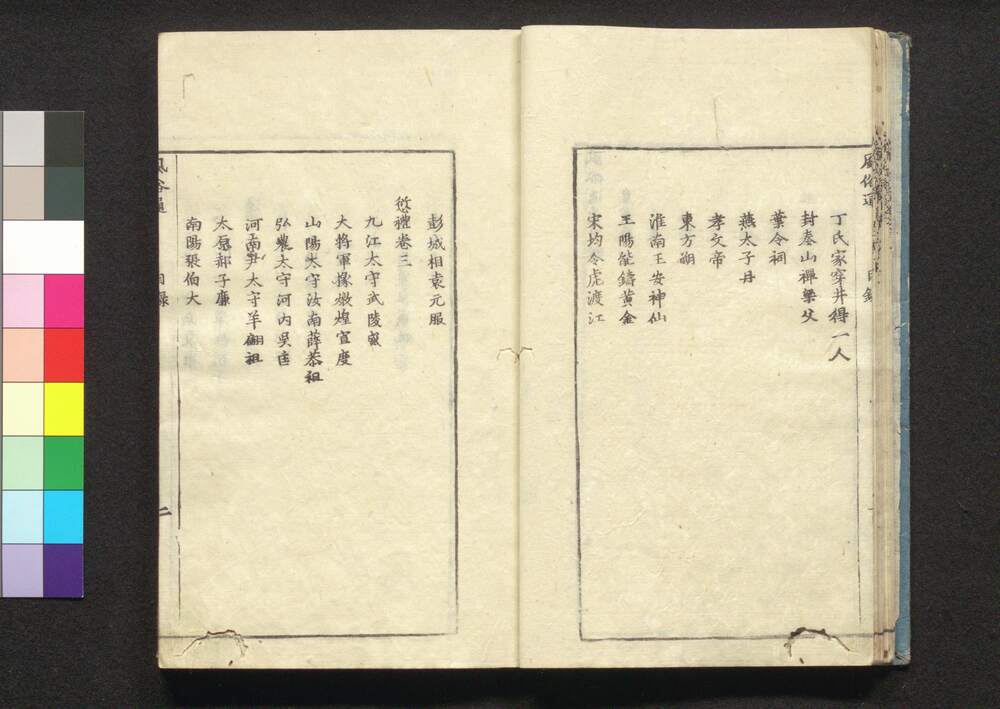 風俗通 目錄
丁氏家穿井得一人
封泰山禪梁父
葉令祠
燕太子丹
孝文帝
東方朔
淮南王安神仙
王陽能鑄黃金
宋均令虎渡江
彭城相袁元服
愆禮卷三
九江太守武陵威
大將軍掾燉煌宣度
山陽太守汝南薛恭祖
弘農太守河內吳匡
河南尹太守羊翩祖
太原郝子廉
南陽張伯大
風俗通 目錄 二